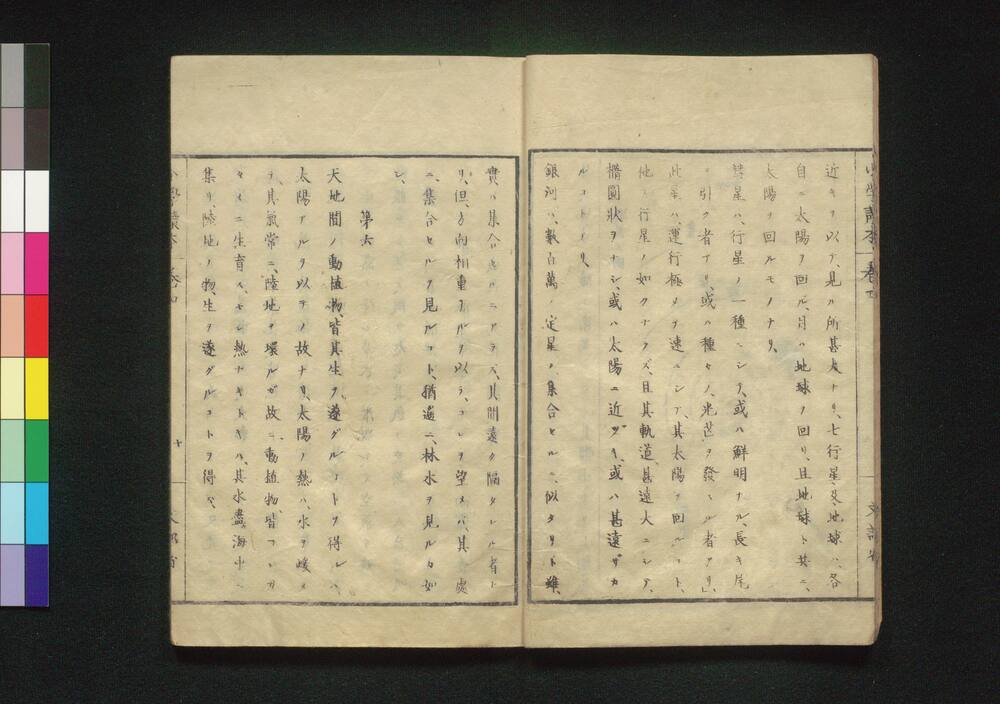 小學讀本 卷四
近キヲ以テ、見ル所甚大ナリ、七行星及地球ハ、各
自ニ太陽ヲ回ル、月ハ地球ヲ回リ、且地球ト共ニ、
太陽ヲ回ルモノナリ、
彗星ハ、行星ノ一種ニシテ、或ハ鮮明ナル、長キ尾
ヲ引ク者アリ、或ハ種々ノ、光芒ヲ發スル者アリ、
此星ハ、運行極メテ速ニシテ、其太陽ヲ回ルコト、
他ノ行星ノ如クナラズ、且其軌道、甚遠大ニシテ、
橢圓狀ヲナシ、或ハ太陽ニ近ヅキ、或ハ甚遠ザカ
ルコトアリ、
銀河ハ、數百萬ノ定星ノ集合セルニ、似タリト雖、
實ハ集合セルニアラズ、其間遠ク隔タレル者ト
リ、但シ方向相重ナルヲ以テ、コレヲ望メバ、其一處
ニ、集合セルヲ見ルコト、猶遙ニ、林木ヲ見ルガ如
シ、
第六
天地間ノ動植物、皆其生ヲ遂グルコトヲ得ルハ、
太陽アルヲ以テノ故ナリ、太陽ノ熱ハ、水ヲ暖メ
テ、其氣常ニ、陸地ヲ環ルガ故ニ、動植物、皆コレガ
タメニ生育ス、モシ熱ナキトキハ、其水盡ク海中ニ
集リ、陸地ノ物、生ヲ遂グルコトヲ得ズ、
小學讀本 卷四
十
文部省